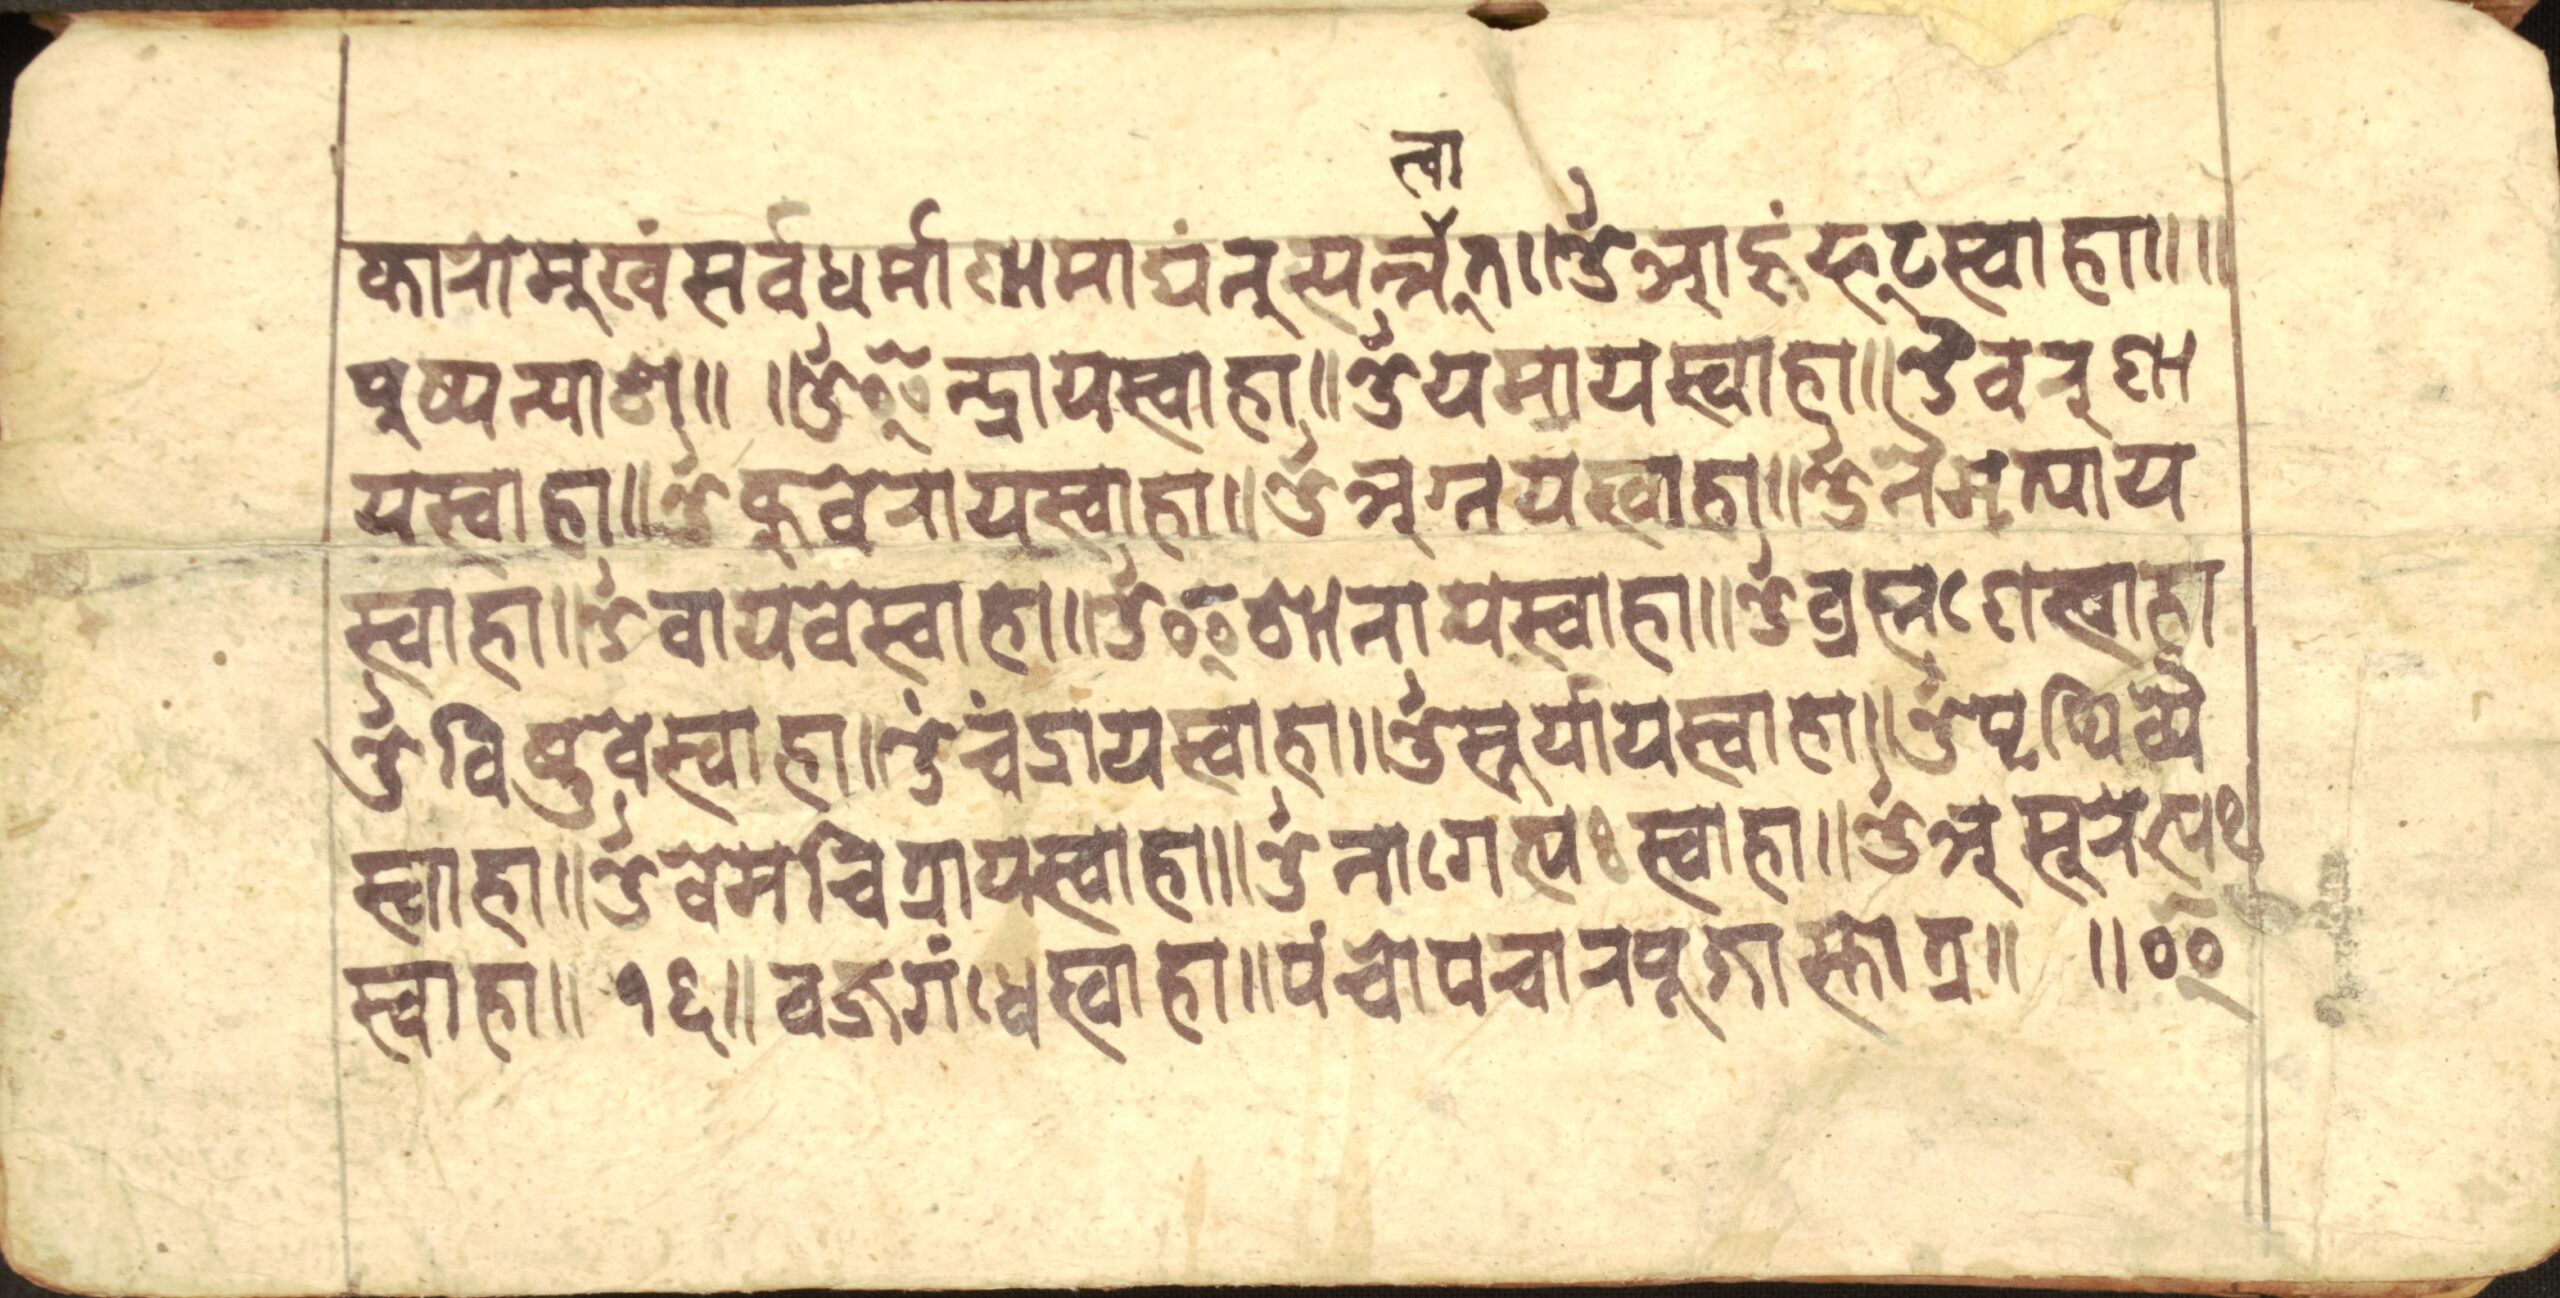 त्वा
कारोमुखंसर्वधर्माणामाद्यंनुत्पर्न्नत।ॐआःहूंफट्स्वाहा॥॥
पुष्पन्याश॥ ॥ॐइन्द्रायस्वाहा॥ॐयमायस्वाहा॥ॐवरुणा
यस्वाहा॥ॐकुवेरायस्वाहा॥ॐअग्नयस्वाहा॥ॐनैऋत्याय
स्वाहा॥ॐवायवेस्वाहा॥ॐइशानायस्वाहा॥ॐब्रह्मणेस्वाहा
ॐविष्णुवेस्वाहा॥ॐचंद्रायस्वाहा॥ॐसूर्यायस्वाहा॥ॐपृथिव्यै
स्वाहा॥ॐवेमचित्रायस्वाहा॥ॐनागेत्यःस्वाहा॥ॐअसूरेत्यः
स्वाहा॥ १६॥ वज्रगंधेस्वाहा॥पंचोपचारपूजास्तोत्र॥ ॥इ